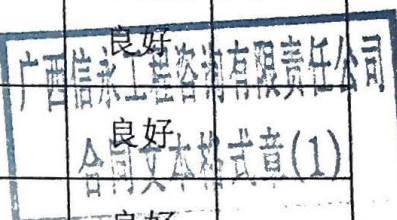 良好
广西信永工程咨询有限责任公司
良好
合同文本格式章(1)
良好